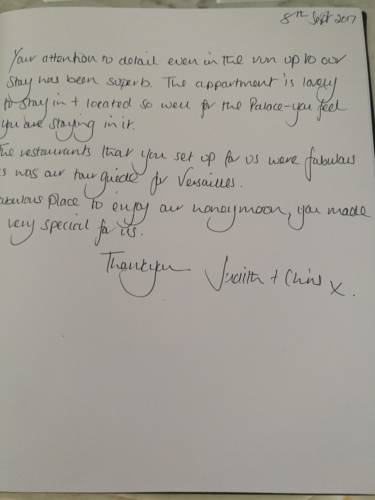 8th Sept 2017
Your attention to detail even in the run up to our
stay has been superb. The appartment is lovely
to stay in + located so well for the Palace - you feel
you are staying in it.
The restaurants that you set up for us were fabulous
as was our tour guide for Versailles.
Fabulous Place to enjoy our honeymoon, you made
very special for us.
Thankyou Judith + Chris x.